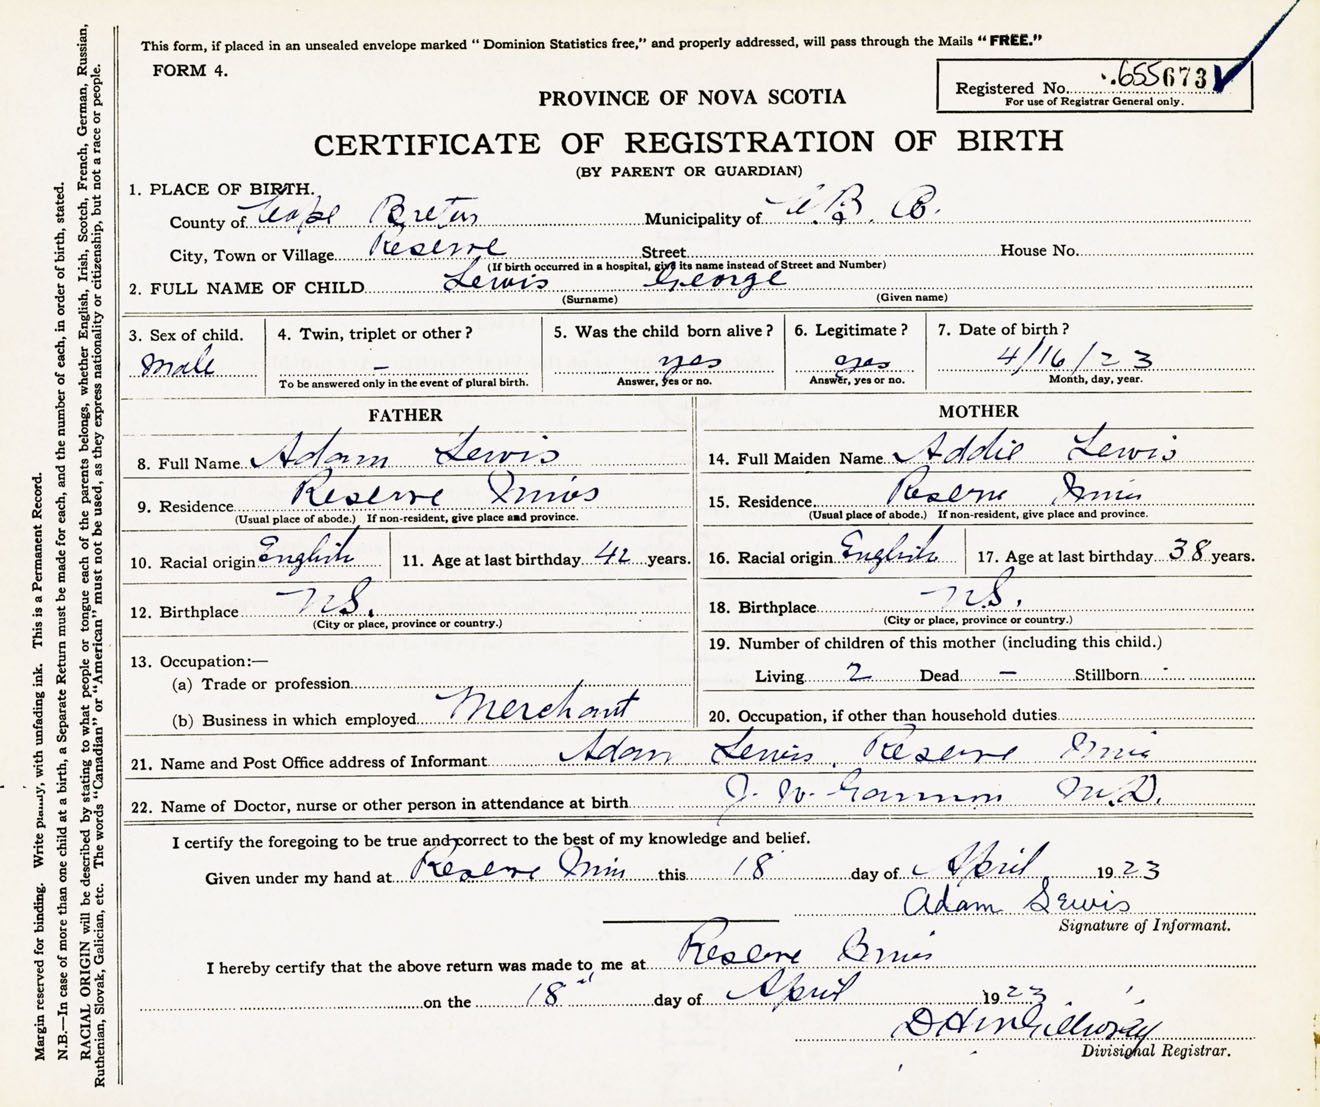 This form, if placed in an unsealed envelope marked " Dominion Statistics free," and properly addressed, will pass through the Mails " FREE."
FORM 4.
Registered No. 655673
For use of Registrar General only.
PROVINCE OF NOVA SCOTIA
CERTIFICATE OF REGISTRATION OF BIRTH
(BY PARENT OR GUARDIAN)
1. PLACE OF BIRTH.
County of Cape Breton Municipality of C. B. Co.
City, Town or Village Reserve Street House No.
(If birth occurred in a hospital, give its name instead of Street and Number)
2. FULL NAME OF CHILD Lewis George
(Surname) (Given name)
3. Sex of child. 4. Twin, triplet or other ? 5. Was the child born alive ? 6. Legitimate ? 7. Date of birth ?
Male — yes yes 4/16/23
To be answered only in the event of plural birth. Answer, yes or no. Answer, yes or no. Month, day, year.
FATHER
8. Full Name Adam Lewis
9. Residence Reserve Mines
(Usual place of abode.) If non-resident, give place and province.
10. Racial origin English 11. Age at last birthday 42 years.
12. Birthplace N.S.
(City or place, province or country.)
13. Occupation:—
(a) Trade or profession
(b) Business in which employed Merchant
MOTHER
14. Full Maiden Name Addie Lewis
15. Residence Reserve Mines
(Usual place of abode.) If non-resident, give place and province.
16. Racial origin English 17. Age at last birthday 38 years.
18. Birthplace N.S.
(City or place, province or country.)
19. Number of children of this mother (including this child.)
Living 2 Dead — Stillborn -
20. Occupation, if other than household duties
21. Name and Post Office address of Informant Adam Lewis, Reserve Mines
22. Name of Doctor, nurse or other person in attendance at birth J. W. M.D.
I certify the foregoing to be true and correct to the best of my knowledge and belief.
Given under my hand at Reserve Mines this 18 day of April 1923
Adam Lewis
Signature of Informant.
I hereby certify that the above return was made to me at Reserve Mines
on the 18 day of April 1923
Divisional Registrar.
Margin reserved for binding. Write plainly, with unfading ink. This is a Permanent Record.
N.B.—In case of more than one child at a birth, a Separate Return must be made for each, and the number of each, in order of birth, stated.
RACIAL ORIGIN will be described by stating to what people or tongue each of the parents belongs, whether English, Irish, Scotch, French, German, Russian,
Ruthenian, Slovak, Galician, etc. The words "Canadian" or "American" must not be used, as they express nationality or citizenship, but not a race or people.